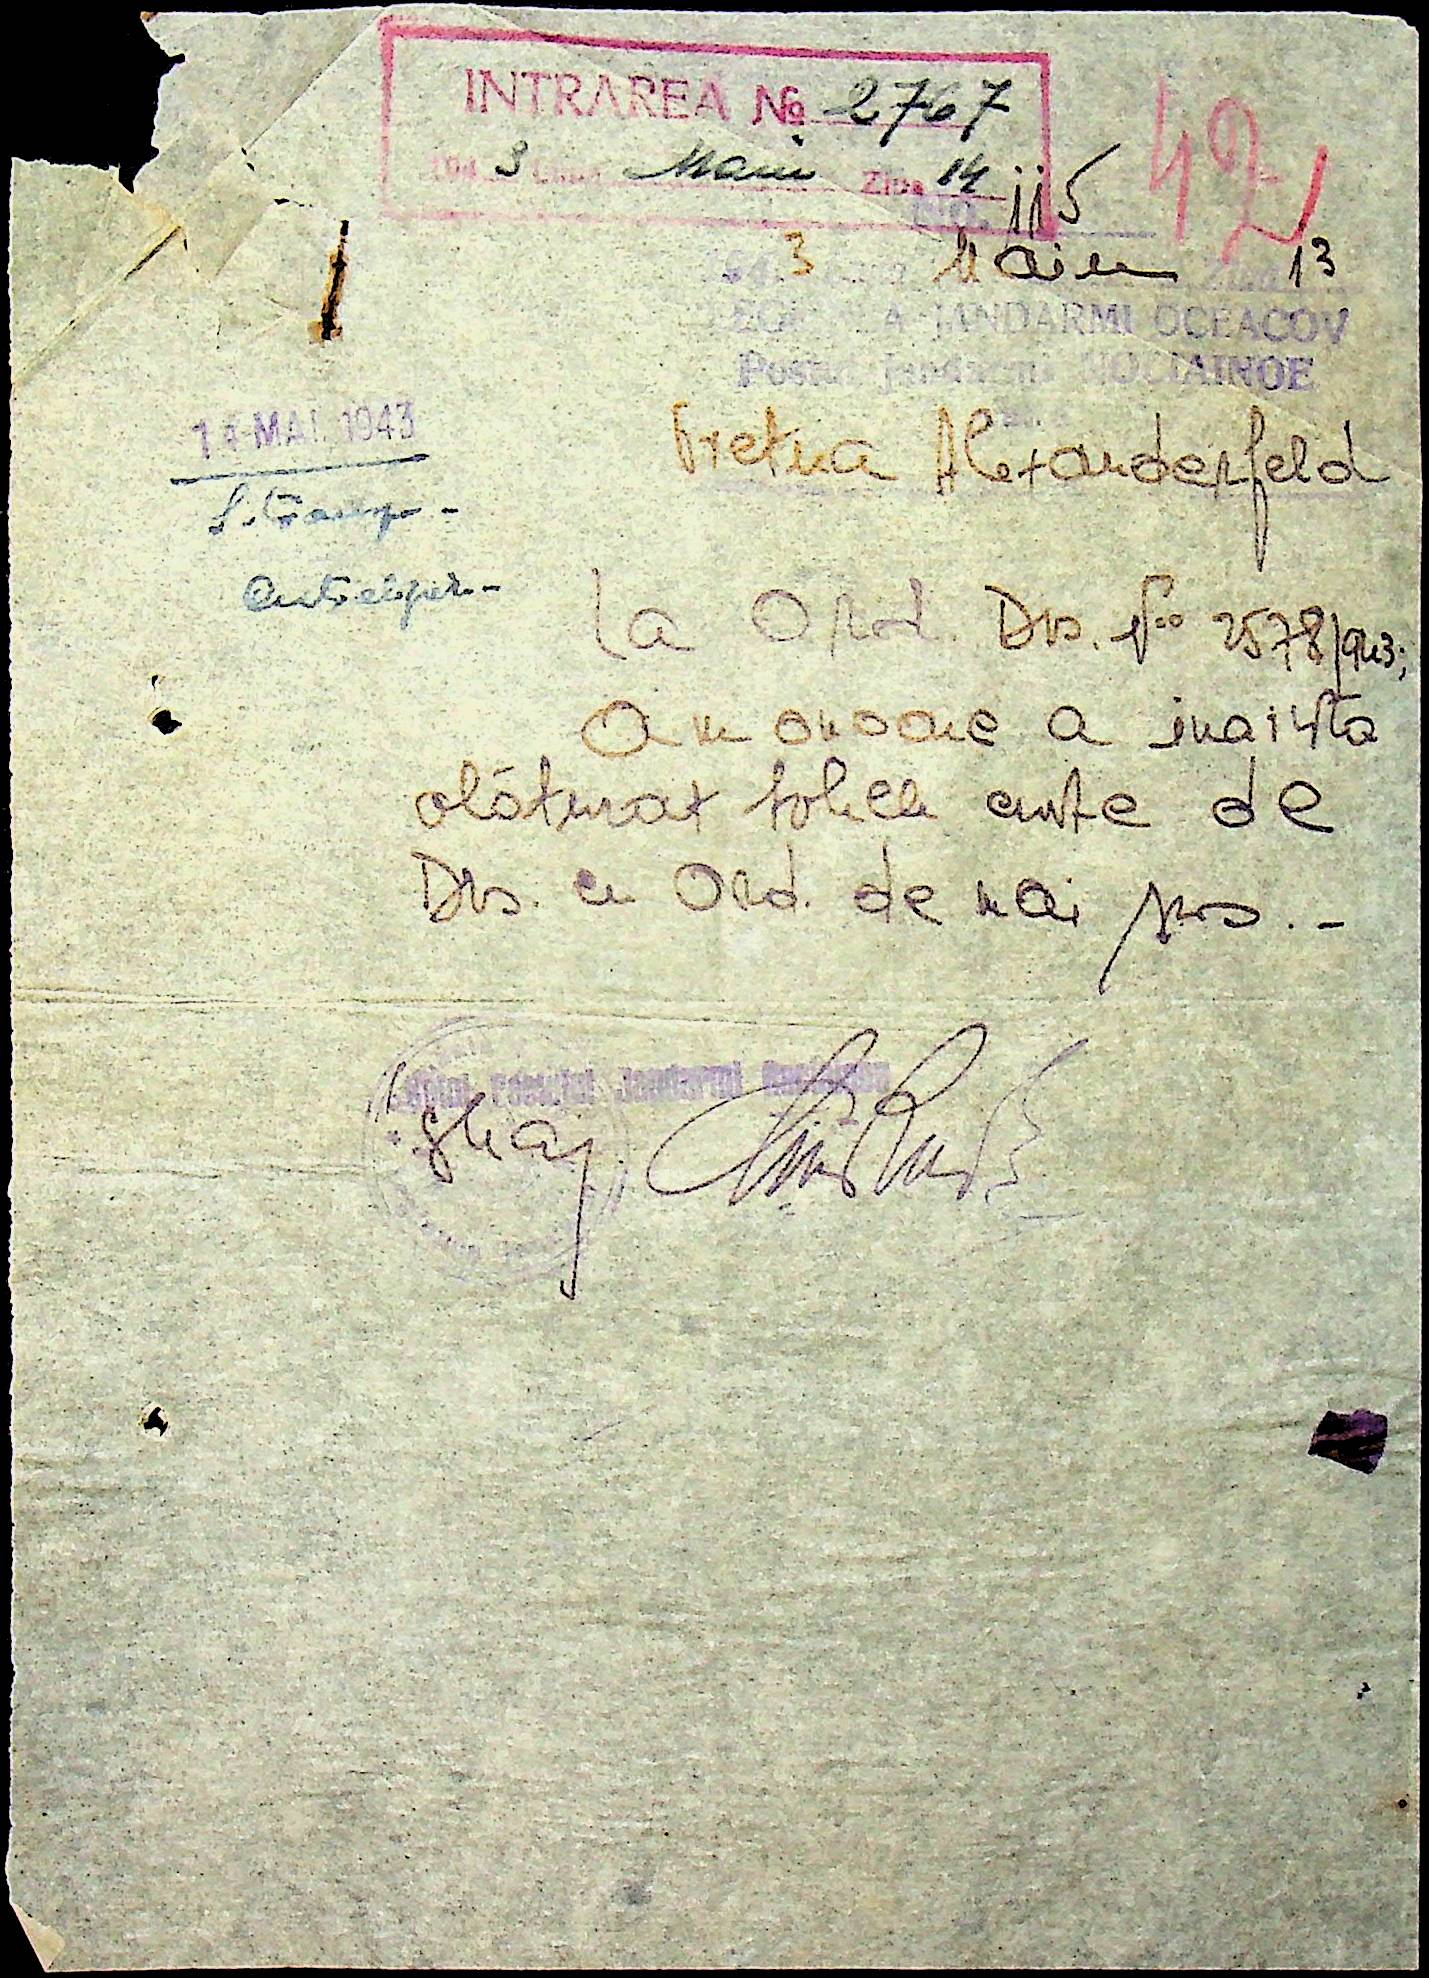 INTRAREA № 2767
194 3 Luna Maiu Ziua 14
42
115
3 Maiu 13
LEGIUNEA JANDARMI OCEACOV
Postul Jandarmi
14 MAI 1943
Pretura Alexanderfeld
La Ord. Dvs. No 2578/943;
Am onoare a inainta
alăturat
Dvs. cu Ord. de mai sus.-
Șeful Postului Jandarmi